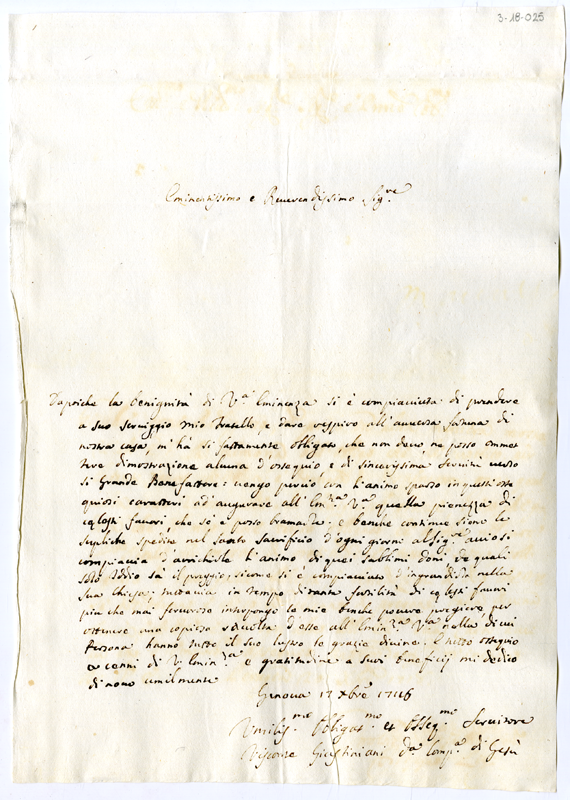 3-18-025
Eminentissimo e Reverendissimo Sig.re
Dapoiche la benignità di V.a Eminenza si è compiacciuta di prendere
a suo serviggio mio fratello, e dare respiro all'aversa fortuna di
nostra casa, m'hà si fattamente obligato, che non devo, ne posso omme
tere dimostrazione alcuna d'ossequio e di sincerissima servitù verso
si Grande Benefattore: vengo perciò con l'animo sparso in questi osse
quiosi caratteri ad'augurare all'Emin.za V.a quella pienezza di
celesti favori, che sò e posso bramarle. e benche continue siano le
supliche spedite nel Santo Sacrificio d'ogni giorni al Sig.re acciò si
compiaccia d'arrichirle l'animo di quei sublimi doni, de quali
solo Iddio sà il preggio, sicome si è compiacciuto d'ingrandirla nella
sua Chiesa; tuttavia in tempo di tanta fertilità di celesti favori
più che mai fervoroso interpongo le mie benche povere preghiere, per
ottenere una copiosa raccolta d'esse all'Emin.za V.a nella di cui
Persona hanno tutto il suo lustro le grazie divine: e tutto ossequio
a cenni di V. Emin.za e gratitudine a suoi beneficij mi dedico
di nuovo umilmente
Genova 17 Xbre 1716
Umilis.mo Obligat.mo et Osseq.mo Servitore
Giustiniani d.a Comp.a di Gesù